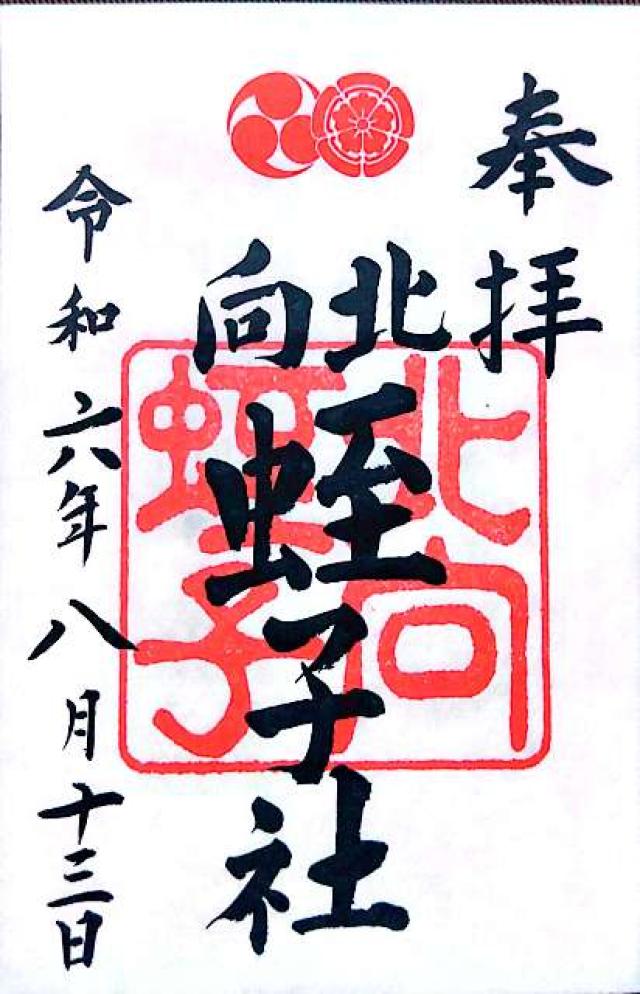 奉拝
北向
蛭子社
北向
蛭子
令和六年八月十三日